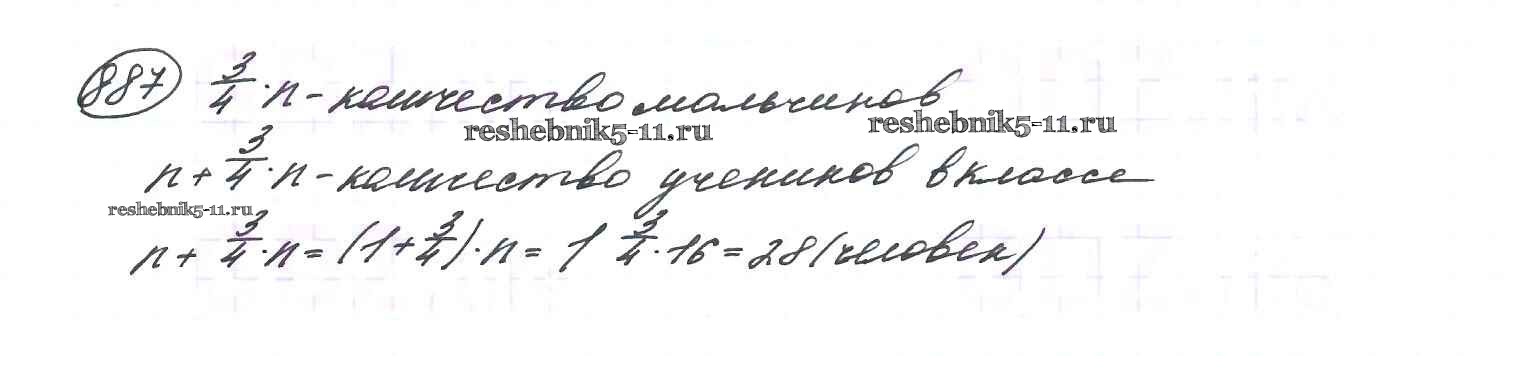 887 3/4 · n - количество мальчиков
reshebnik5-11.ru reshebnik5-11.ru
n + 3/4 · n - количество учеников в классе
reshebnik5-11.ru
n + 3/4 · n = (1 + 3/4) · n = 1 3/4 · 16 = 28 (человек)